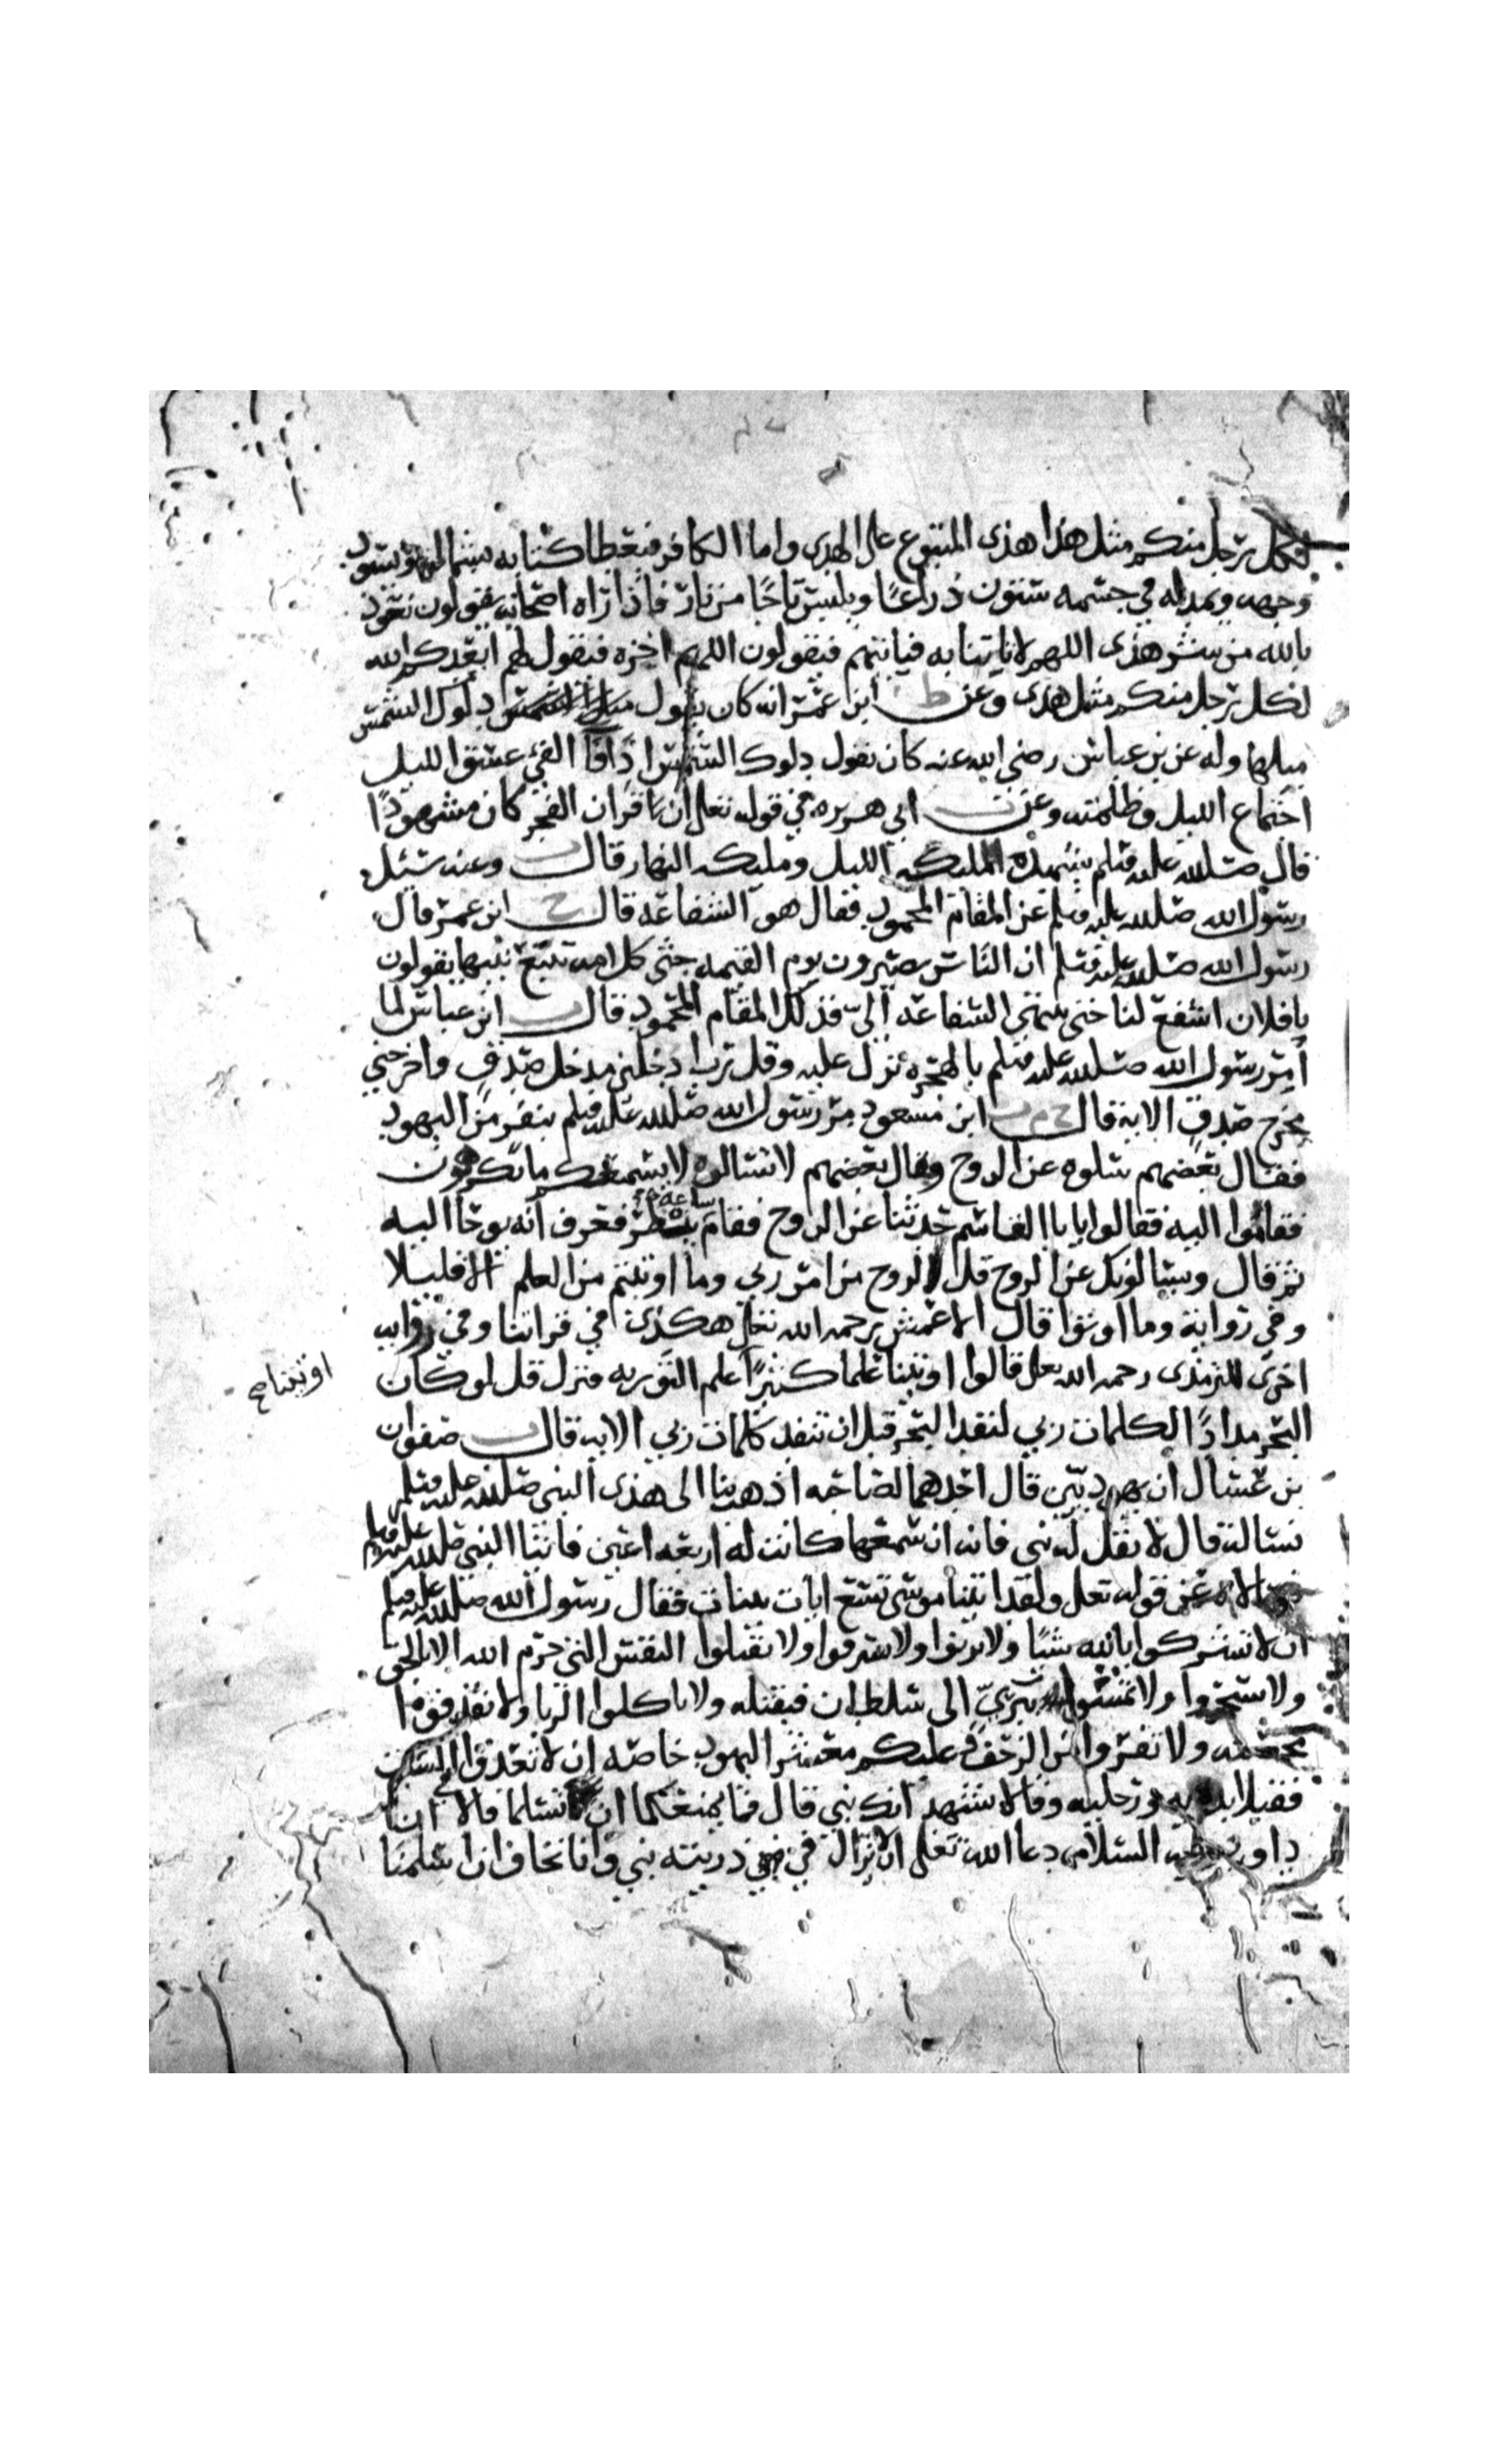 لكل رجل منكم مثل هذا هذى المتبوع على الهدى واما الكافر فيعطا كتابه بشماله ويسود
وجهه ويمد له في جسمه ستون ذراعًا ويلبس تاجًا من نار فاذا رآه اصحابه يقولون نعوذ
بالله من شر هذى اللهم لا تاتنا به فياتيهم فيقولون اللهم اخزه فيقول لهم ابعدكم الله
لكل رجل منكم مثل هذى وعن ط ابن عمر انه كان يقول دلوك الشمس
ميلها وله عن بن عباس رضي الله عنه كان يقول دلوك الشمس اذا فآ الفيء غسق الليل
اجتماع الليل وظلمته وعن ت ابي هريره في قوله تعلى ان قران الفجر كان مشهودًا
قال صلى الله عليه وسلم تشهده ملىكه الليل وملىكه النهار قال ت وعنه سئل
رسول الله صلى الله عليه وسلم عن المقام المحمود فقال هو الشفاعه قال خ ابن عمر قال
رسول الله صلى الله عليه وسلم ان الناس يصيرون يوم القيمه جثى كل امه تتبع نبيها يقولون
يا فلان اشفع لنا حتى تنتهي الشفاعه اليّ فذلك المقام المحمود قال ت ابن عباس لما
أمر رسول الله صلى الله عليه وسلم بالهجره نزل عليه وقل رب ادخلني مدخل صدق واخرجني
مخرج صدق الايه قال خ م ت ابن مسعود مر رسول الله صلى الله عليه وسلم بنفر من اليهود
فقال بعضهم سلوه عن الروح وقال بعضهم لا تسالوه لا يسمعكم ما تكرهون
فقاموا اليه فقالوا يابا القاسم حدثنا عن الروح فقام ساعه ينظر فعرف انه يوحا اليه
ثم قال ويسالونك عن الروح قل الروح من امر ربي وما اوتيتم من العلم الا قليلا
وفي رواية وما اوتوا قال الاعمش رحمه الله تعلى هكذى في قراتنا وفي روايه
اخرى للترمذى رحمه الله تعلى قالوا اوتينا علما كثيرًا علم التوريه فنزل قل لو كان
اوتينا صح
البحر مدادًا لكلمات ربي لنفد البحر قبل ان تنفد كلمات ربي الايه قال ت صفوان
بن عسال ان يهوديّين قال احدهما لصاحبه اذهب بنا الى هذى النبي صلى الله عليه وسلم
نساله قال لا تقل له نبي فانه ان سمعها كانت له اربعه اعين فاتيا النبي صلى الله عليه وسلم
فسالاه عن قوله تعلى ولقد اتينا موسى تسع ايات بينات فقال رسول الله صلى الله عليه وسلم
ان لا تشركوا بالله شيًا ولا تزنوا ولا تسرقوا ولا تقتلوا النفس التي حرم الله الا بالحق
ولا تسحروا ولا تمشوا ببريّ الى سلطان فيقتله ولا تاكلوا الربا ولا تقذفوا
محصنه ولا تفروا من الزحف وعليكم معشر اليهود خاصه ان لا تعدوا في السبت
فقبلا يديه ورجليه وقالا نشهد انك نبي قال فما يمنعكما ان تسلما قالا ان
داود عليه السلام دعا الله تعلى ان لا يزال في ذريته نبي وانا نخاف ان اسلمنا